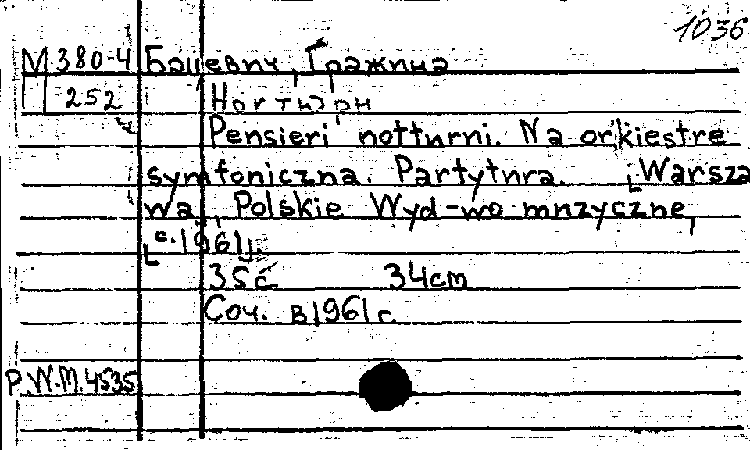 1036
M 380-4 Бацевич, Гражина
252 Ноктюрн
Pensieri notturni. Na orkiestre
symfoniczna. Partytura. [Warsza
wa], Polskie Wyd-wo muzyczne,
[c. 1961].
35 с 34cm
Соч. в 1961 г.
P.W.M. 4535